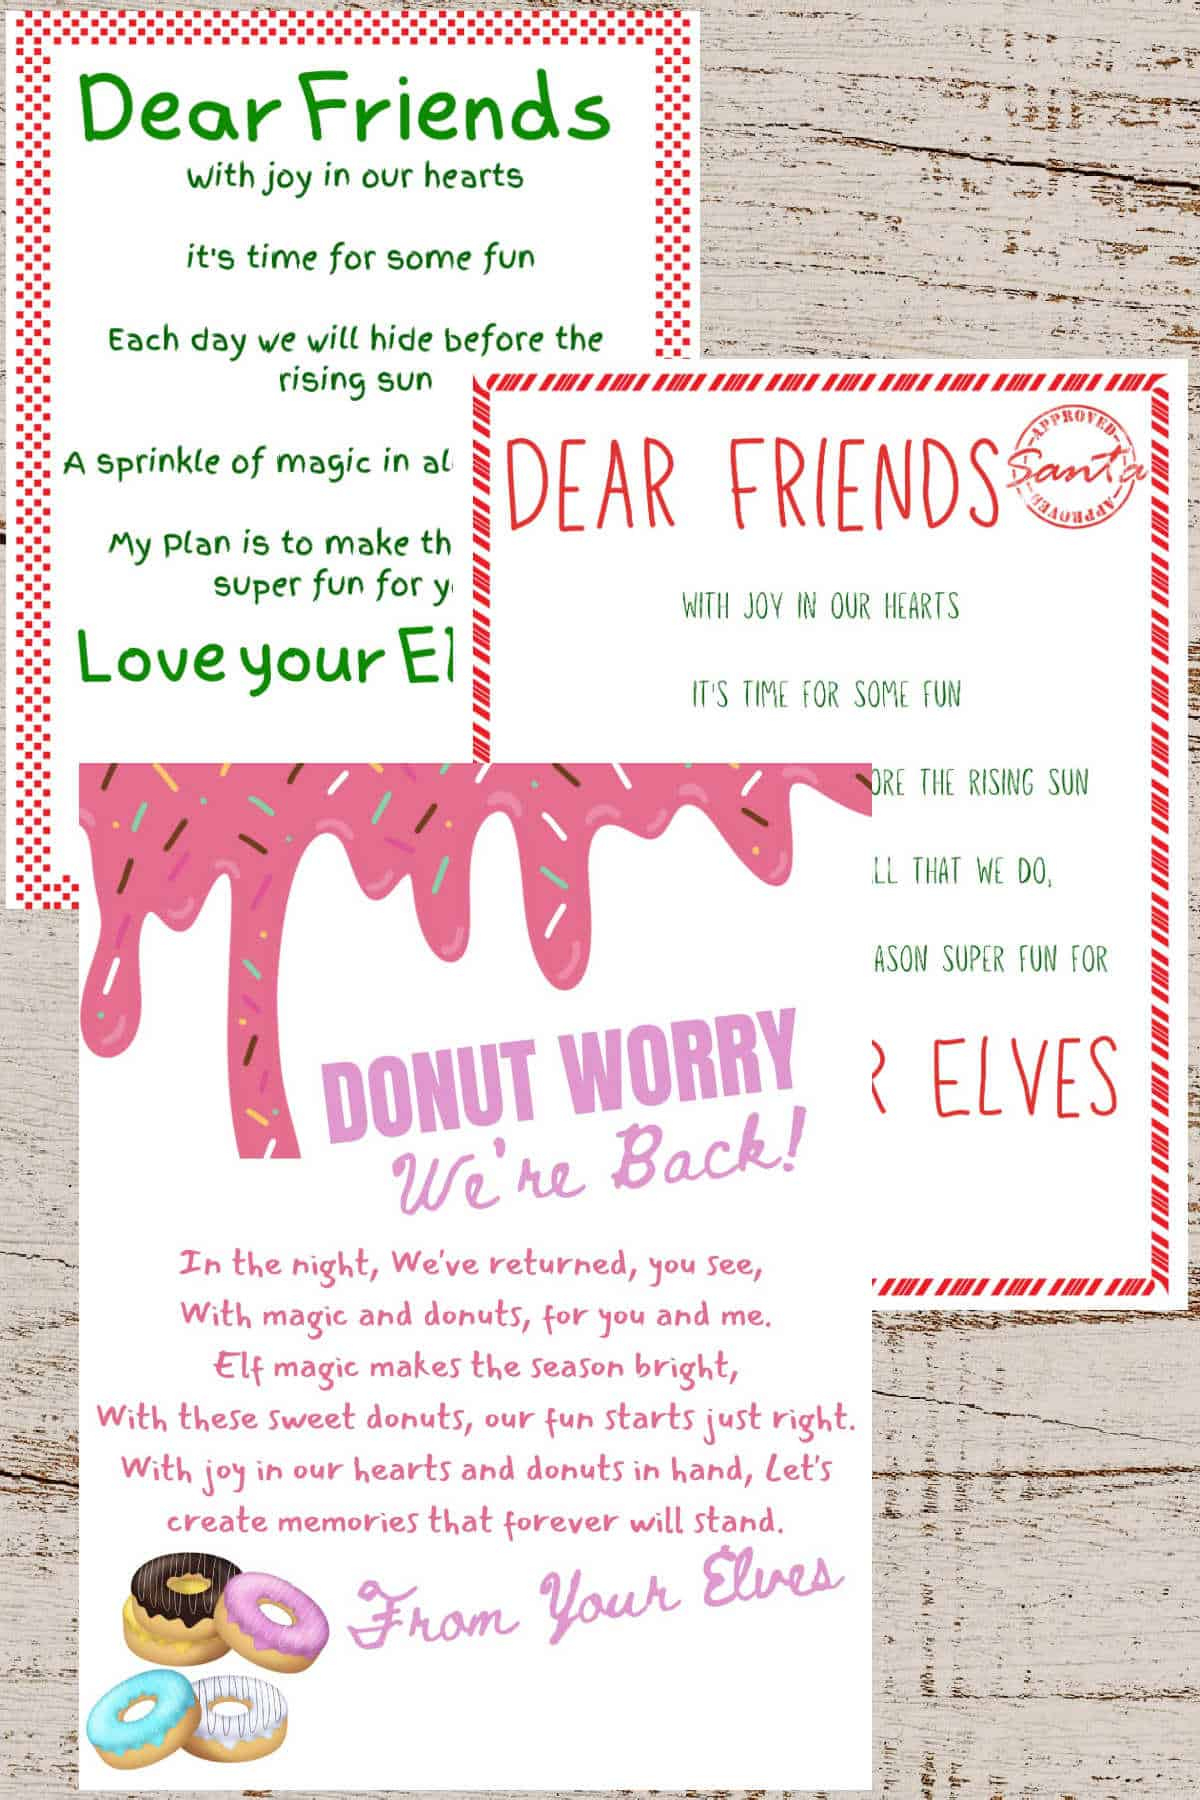 Dear Friends
with joy in our hearts
it's time for some fun
Each day we will hide before the
rising sun
A sprinkle of magic in
My Plan is to make
super fun for
Love your
DEAR FRIENDS
APPROVED
Santa
APPROVED
WITH JOY IN OUR HEARTS
IT'S TIME FOR SOME FUN
THE RISING SUN
THAT WE DO,
SUPER FUN FOR
ELVES
DONUT WORRY
We're Back!
In the night, We've returned, you see,
With magic and donuts, for you and me.
Elf magic makes the season bright,
With these sweet donuts, our fun starts just right.
With joy in our hearts and donuts in hand, Let's
create memories that forever will stand.
From Your Elves